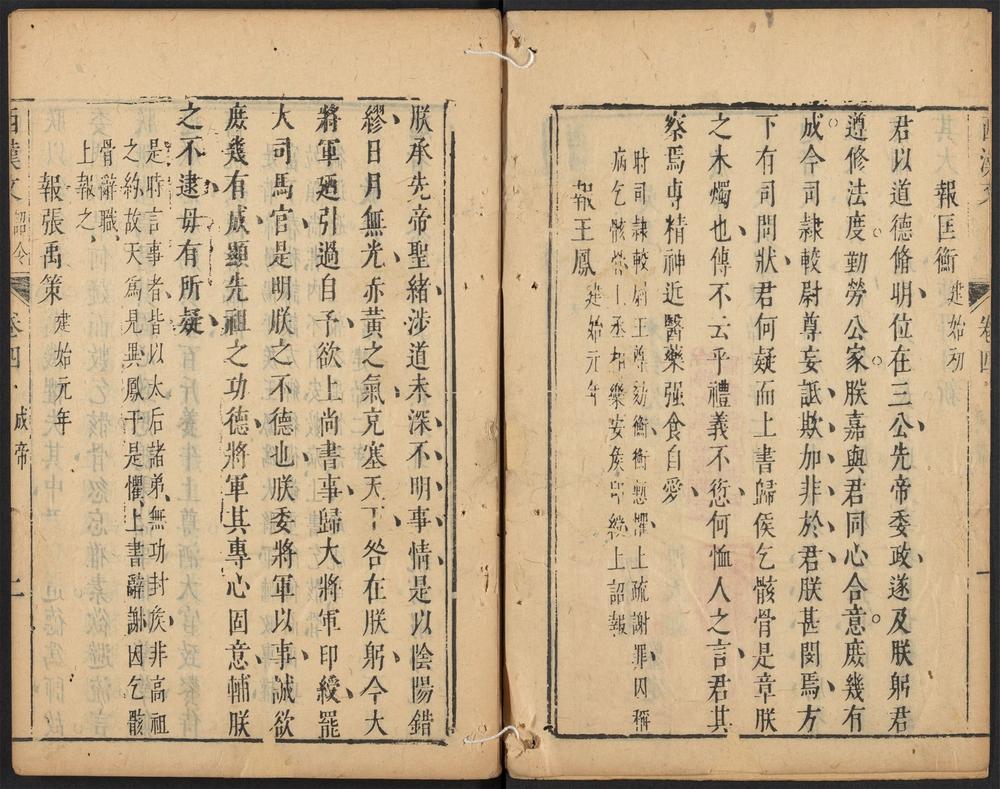 西漢文
卷四
報匡衡 建始初
君以道德脩明位在三公先帝委政遂及朕躬君
遵修法度勤勞公家朕嘉與君同心合意庶幾有
成今司隸較尉尊妄詆欺加非於君朕甚閔焉方
下有司問狀君何疑而上書歸侯乞骸骨是章朕
之未燭也傳不云乎禮義不愆何恤人之言君其
察焉専精神近醫藥强食自愛
時司隸較尉王尊劾衡衡慙懼上疏謝罪因稱
病乞骸骨上丞相樂安矦印綬上詔報
報王鳳 建始元年
朕承先帝聖緒涉道未深不明事情是以陰陽錯
繆日月無光赤黃之氣充塞天下咎在朕躬今大
將軍廼引過自予欲上尚書事歸大將軍印綬罷
大司馬官是明朕之不德也朕委將軍以事誠欲
庶幾有成顯先祖之功德將軍其專心固意輔朕
之不逮毋有所疑
是時言事者皆以太后諸弟無功封矦非高祖
之約故天爲見異鳳于是懼上書辭謝因乞骸
骨辭職
上報之
報張禹策 建始元年
西漢文 詔令 卷四 成帝 二